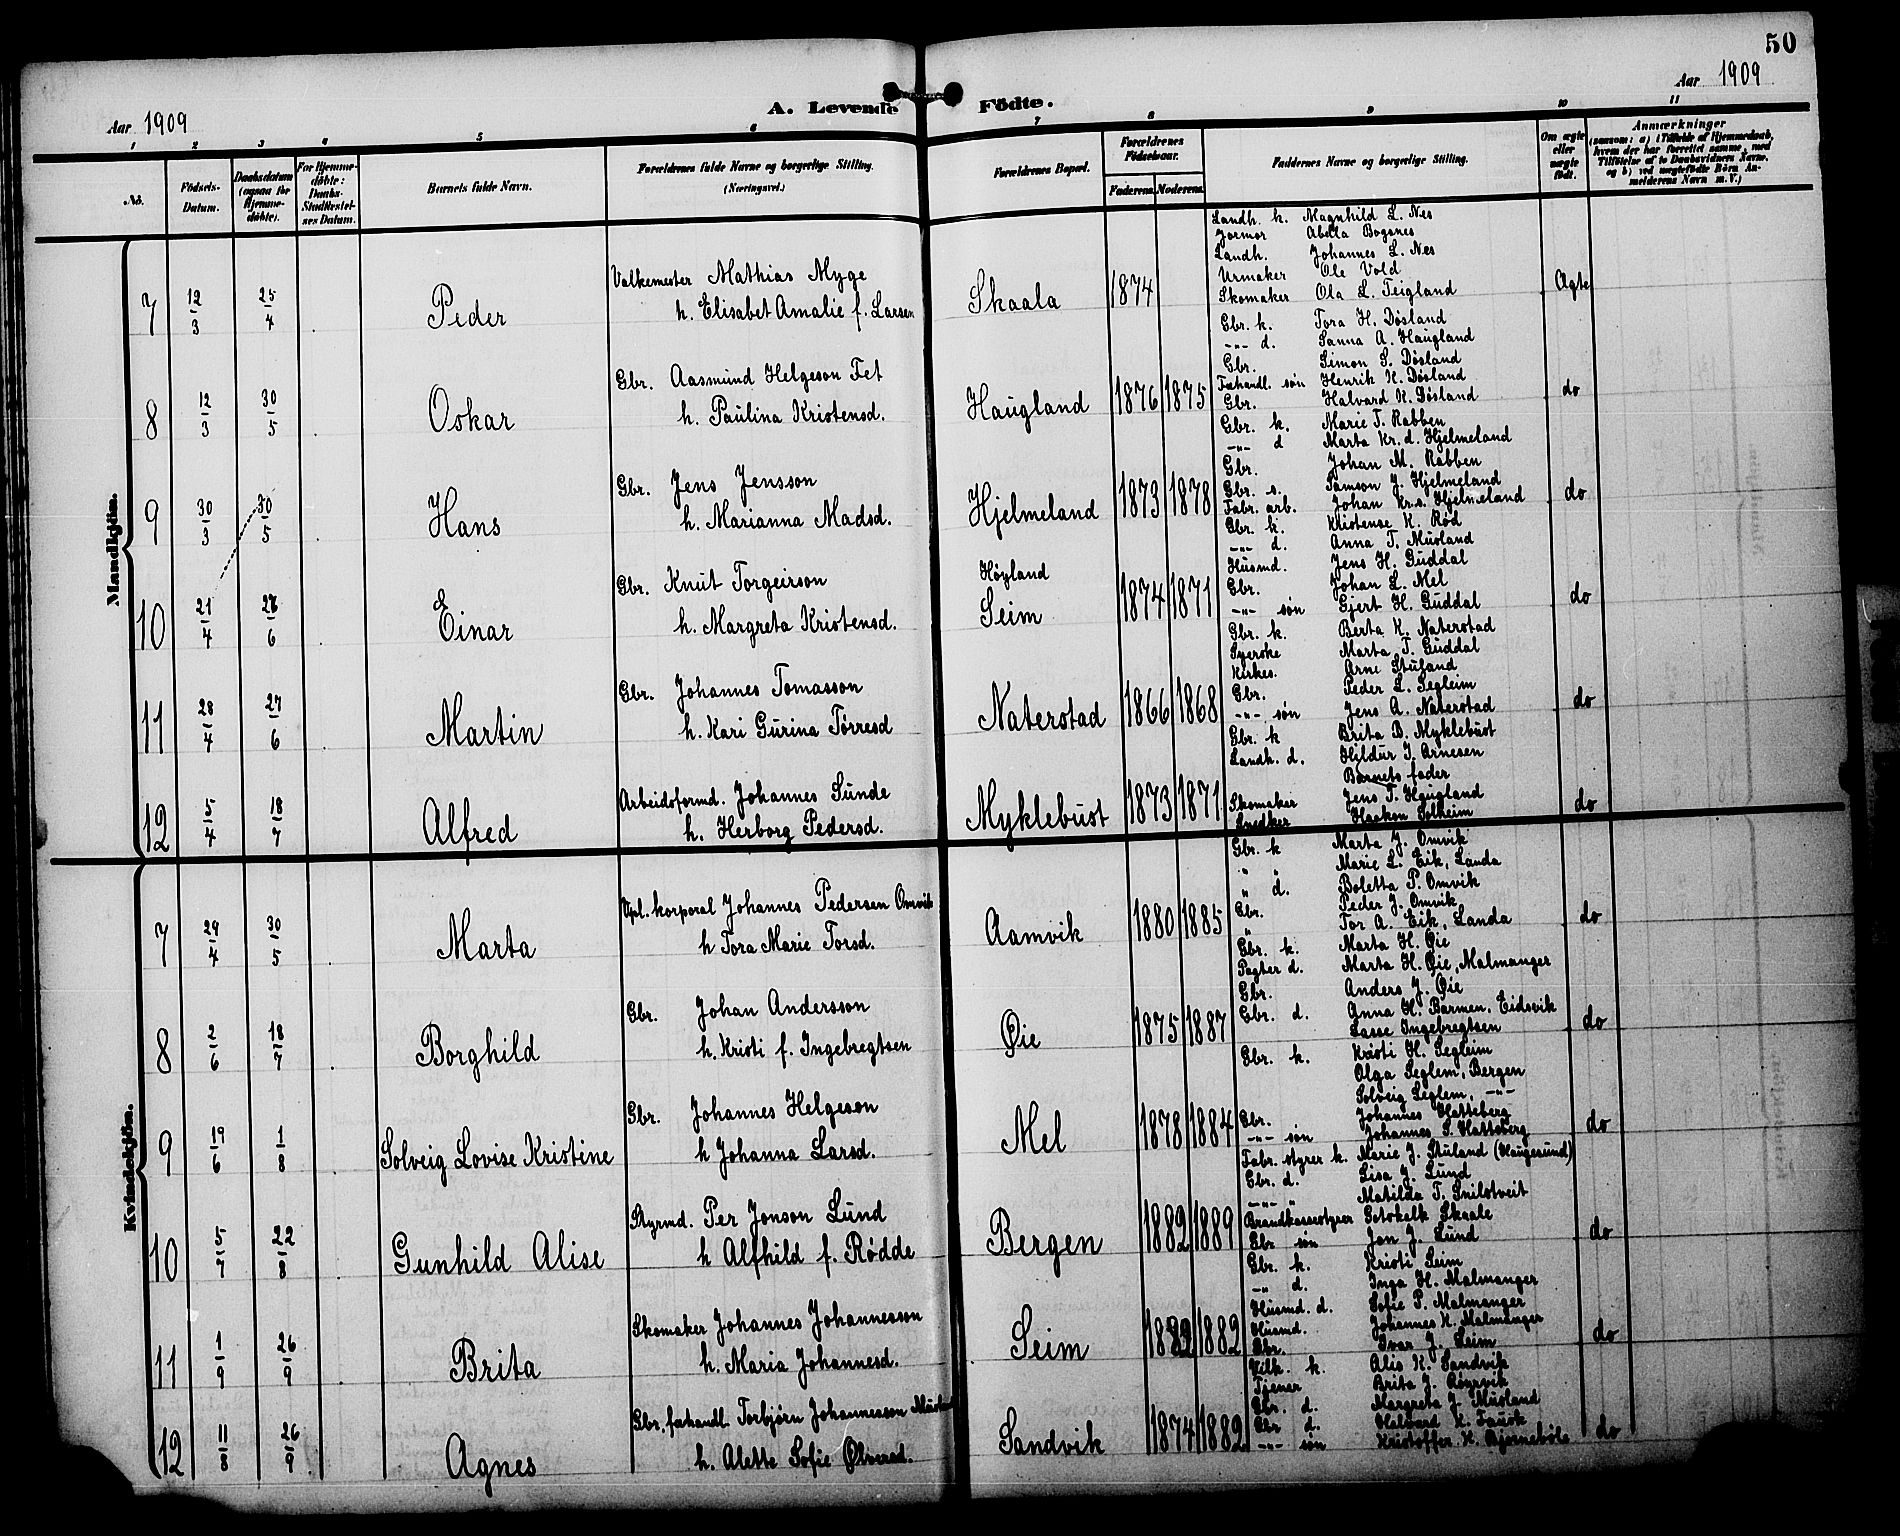 50
Aar 1909
Aar 1909
A. Levende Födte.
1 2 3 4 5 6 7 8 9 10 11
No.
Födsels-Datum.
Daabsdatum (ogsaa for Hjemme-döbte).
For Hjemme-döbte: Daabs-Stadfæstel-ses Datum.
Barnets fulde Navn.
Forældrenes fulde Navne og borgerlige Stilling.
(Næringsvei.)
Forældrenes Bopæl.
Forældrenes Födselsaar.
Faderens. Moderens.
Faddernes Navne og borgerlige Stilling.
Om ægte eller uægte födt.
Anmærkninger
(saasom: a) i Tilfælde af Hjemmedaab,
hvem der har forrettet samme, med
Tilföielse af to Daabsvidners Navne,
og b) ved uægtefödte Börn An-
melderens Navn m. V.)
Mandkjön.
7 12/3 25/4 Peder
Valkemester Mathias Myge
h. Elisabet Amalie f. Larsen
Skaala 1874
Landh. k. Magnhild L. Nes
Jormor Abella Bogsnes
Landh. Johannes L. Nes
Urmaker Ole Vold
Skomaker Ola L. Teigland
Ægte
8 12/3 30/5 Oskar
Gbr. Aasmund Helgeson Fet
h. Paulina Kristensd.
Haugland 1876 1875
Gbr. k. Tora H. Døsland
-"- d. Sanna A. Haugland
Gbr. Simon S. Døsland
Fæhandl. søn Henrik K. Døsland
Gbr. Halvard K. Døsland
do
9 30/3 30/5 Hans
Gbr. Jens Jensson
h. Marianna Madsd.
Hjelmeland 1873 1878
Gbr. k. Marie T. Rabben
-"- d Marta Kr.d. Hjelmeland
Gbr. Johan M. Rabben
Gbr. s. Samson J. Hjelmeland
Fabr. arb. Johan Kr.s. Hjelmeland
do
10 21/4 26/6 Einar
Gbr. Knut Torgeirson
h. Margreta Kristensd.
Høyland
Seim 1874 1871
Gbr. k. Kristense K. Rød
-"- d. Anna T. Musland
Husmd. Jens H. Guddal
Gbr. Johan L. Mel
-"- søn Gjert H. Guddal
do
11 28/4 27/6 Martin
Gbr. Johannes Tomasson
h. Kari Gurina Tørresd
Naterstad 1866 1868
Gbr. k. Berta K. Naterstad
Syerske Marta T. Guddal
Kirkes. Arne Stuland
Gbr. Peder L. Segleim
-"- søn Jens A. Naterstad
do
12 5/4 18/7 Alfred
Arbeidsformd. Johannes Sunde
h. Herborg Pedersd.
Myklebust 1873 1871
Gbr. k Brita B. Myklebust
Landh. d. Hjldur I. Arnesen
Barnets fader
Skomaker Jens T. Haugland
Snedker Haakon Solheim
do
Kvindekjön.
7 29/4 30/5 Marta
Vpl. korporal Johannes Pedersen Omvik
h Tora Marie Torsd.
Aamvik 1880 1885
Gbr. k Marta J. Omvik
" " Marie L. Eik, Landa
" d. Boletta P. Omvik
Gbr. Peder J. Omvik
" Tor A. Eik, Landa
do
8 2/6 18/7 Borghild
Gbr. Johan Andersson
h. Kristi f. Ingebregtsen
Øie 1875 1887
Gbr. k. Marta H. Øie
Pagter d. Marta H. Øie, Malmanger
Gbr. Anders J. Øie
Gbr. d. Anna H. Barmen, Eidsvik
Lasse Ingebregtsen
do
9 19/6 1/8 Solveig Lovise Kristine
Gbr. Johannes Helgeson
h Johanna Larsd.
Mel 1878 1884
Gbr. k. Kristi H. Segleim
Olga Seglem, Bergen
Solveig Seglem, -"-
Gbr. Johannes Hatteberg
-"- søn Johannes S. Hatteberg
do
10 5/7 22/8 Gunhild Alise
Styrmd. Per Jonson Lund
h Alfhild f. Rødde
Bergen 1882 1889
Fabr. styrer k. Marie J. Stuland (Haugesund)
Gbr. d. Lisa J. Lund
-"- " Matilda T. Snilstveit
Brandkassestyrer Gotskalk Skaale
Gbr søn Jon J. Lund
do
11 1/9 26/9 Brita
Skomaker Johannes Johannesson
h. Maria Johannesd.
Seim 1882 1882
Gbr. k. Kristi Seim
-"- d. Inga H. Malmanger
Husmd. d. Sofie P. Malmanger
Husmd. Johannes K. Malmanger
Gbr. Ivar J. Seim
do
12 11/8 26/9 Agnes
Gbr. fæhandl. Torbjørn Johannesson Musland
h. Alette Sofie Ølversd.
Sandvik 1874 1882
k. Alis K. Sandvik
Tjener Brita J. Røyrvik
Gbr. d. Margreta J. Musland
Gbr d. Halvard K. Fausk
-"- søn Kristoffer K. Bjørnebøle
do